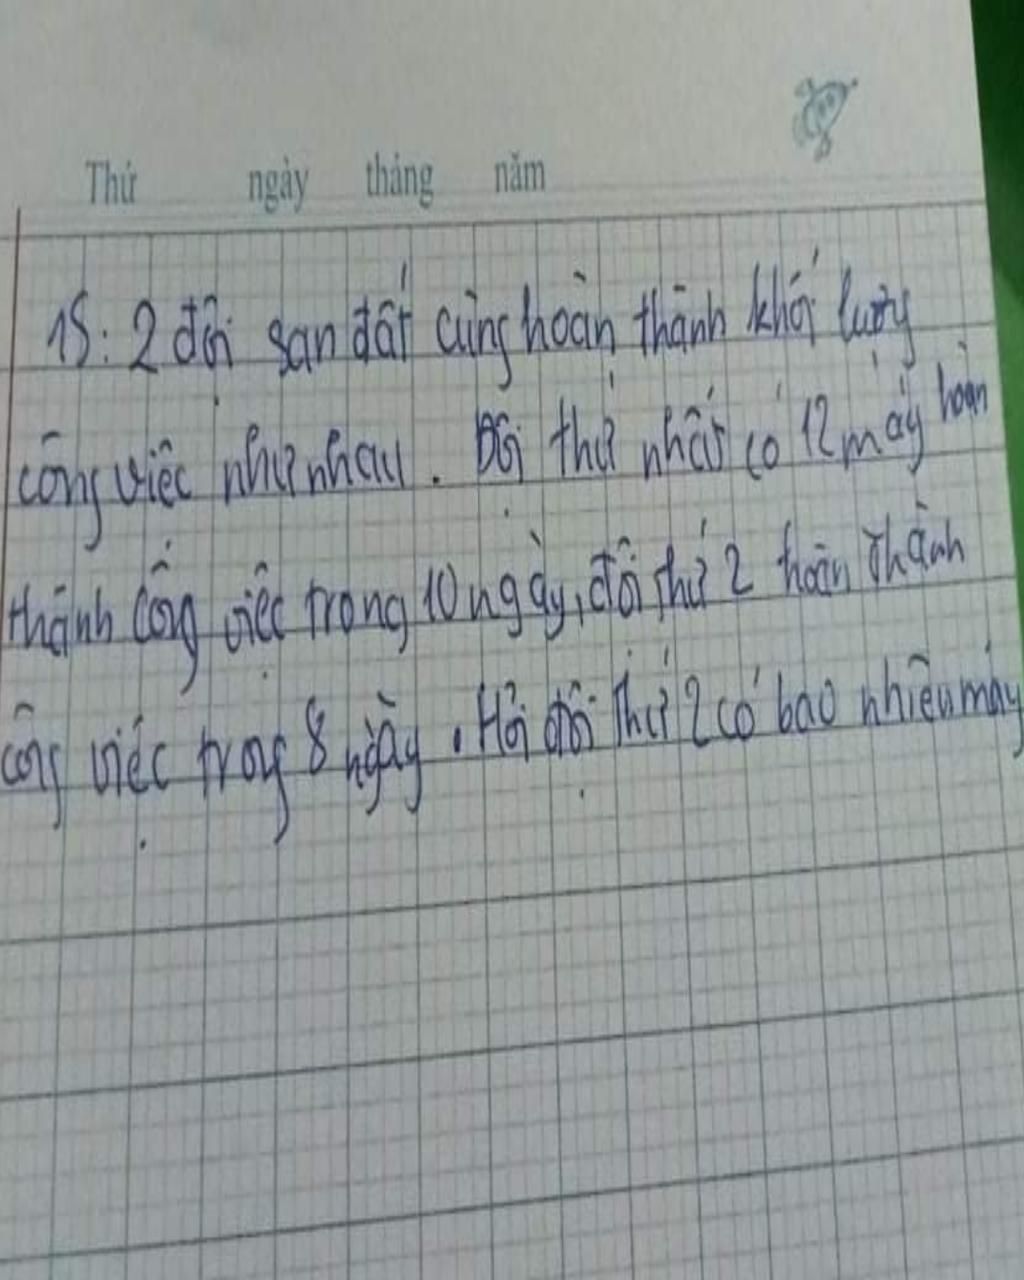 Thứ ngày tháng năm
15: 2 đội san đất cùng hoàn thành khối lượng
công việc như nhau. Đội thứ nhất có 12 máy hoàn
thành công việc trong 10 ngày, đội thứ 2 hoàn thành
công việc trong 8 ngày. Hỏi đội thứ 2 có bao nhiêu máy